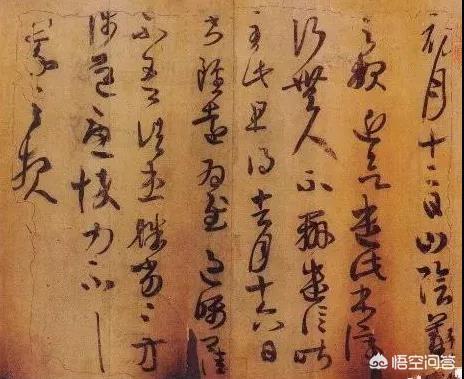 初月十二日山陰羲
之報近欲遣此書停
行無人不辦遣信昨
至此且得去月十六日
書雖遠為慰過囑
不吾諸患殊劣〻方
涉道憂悴力不一一
羲之報
悟空问答